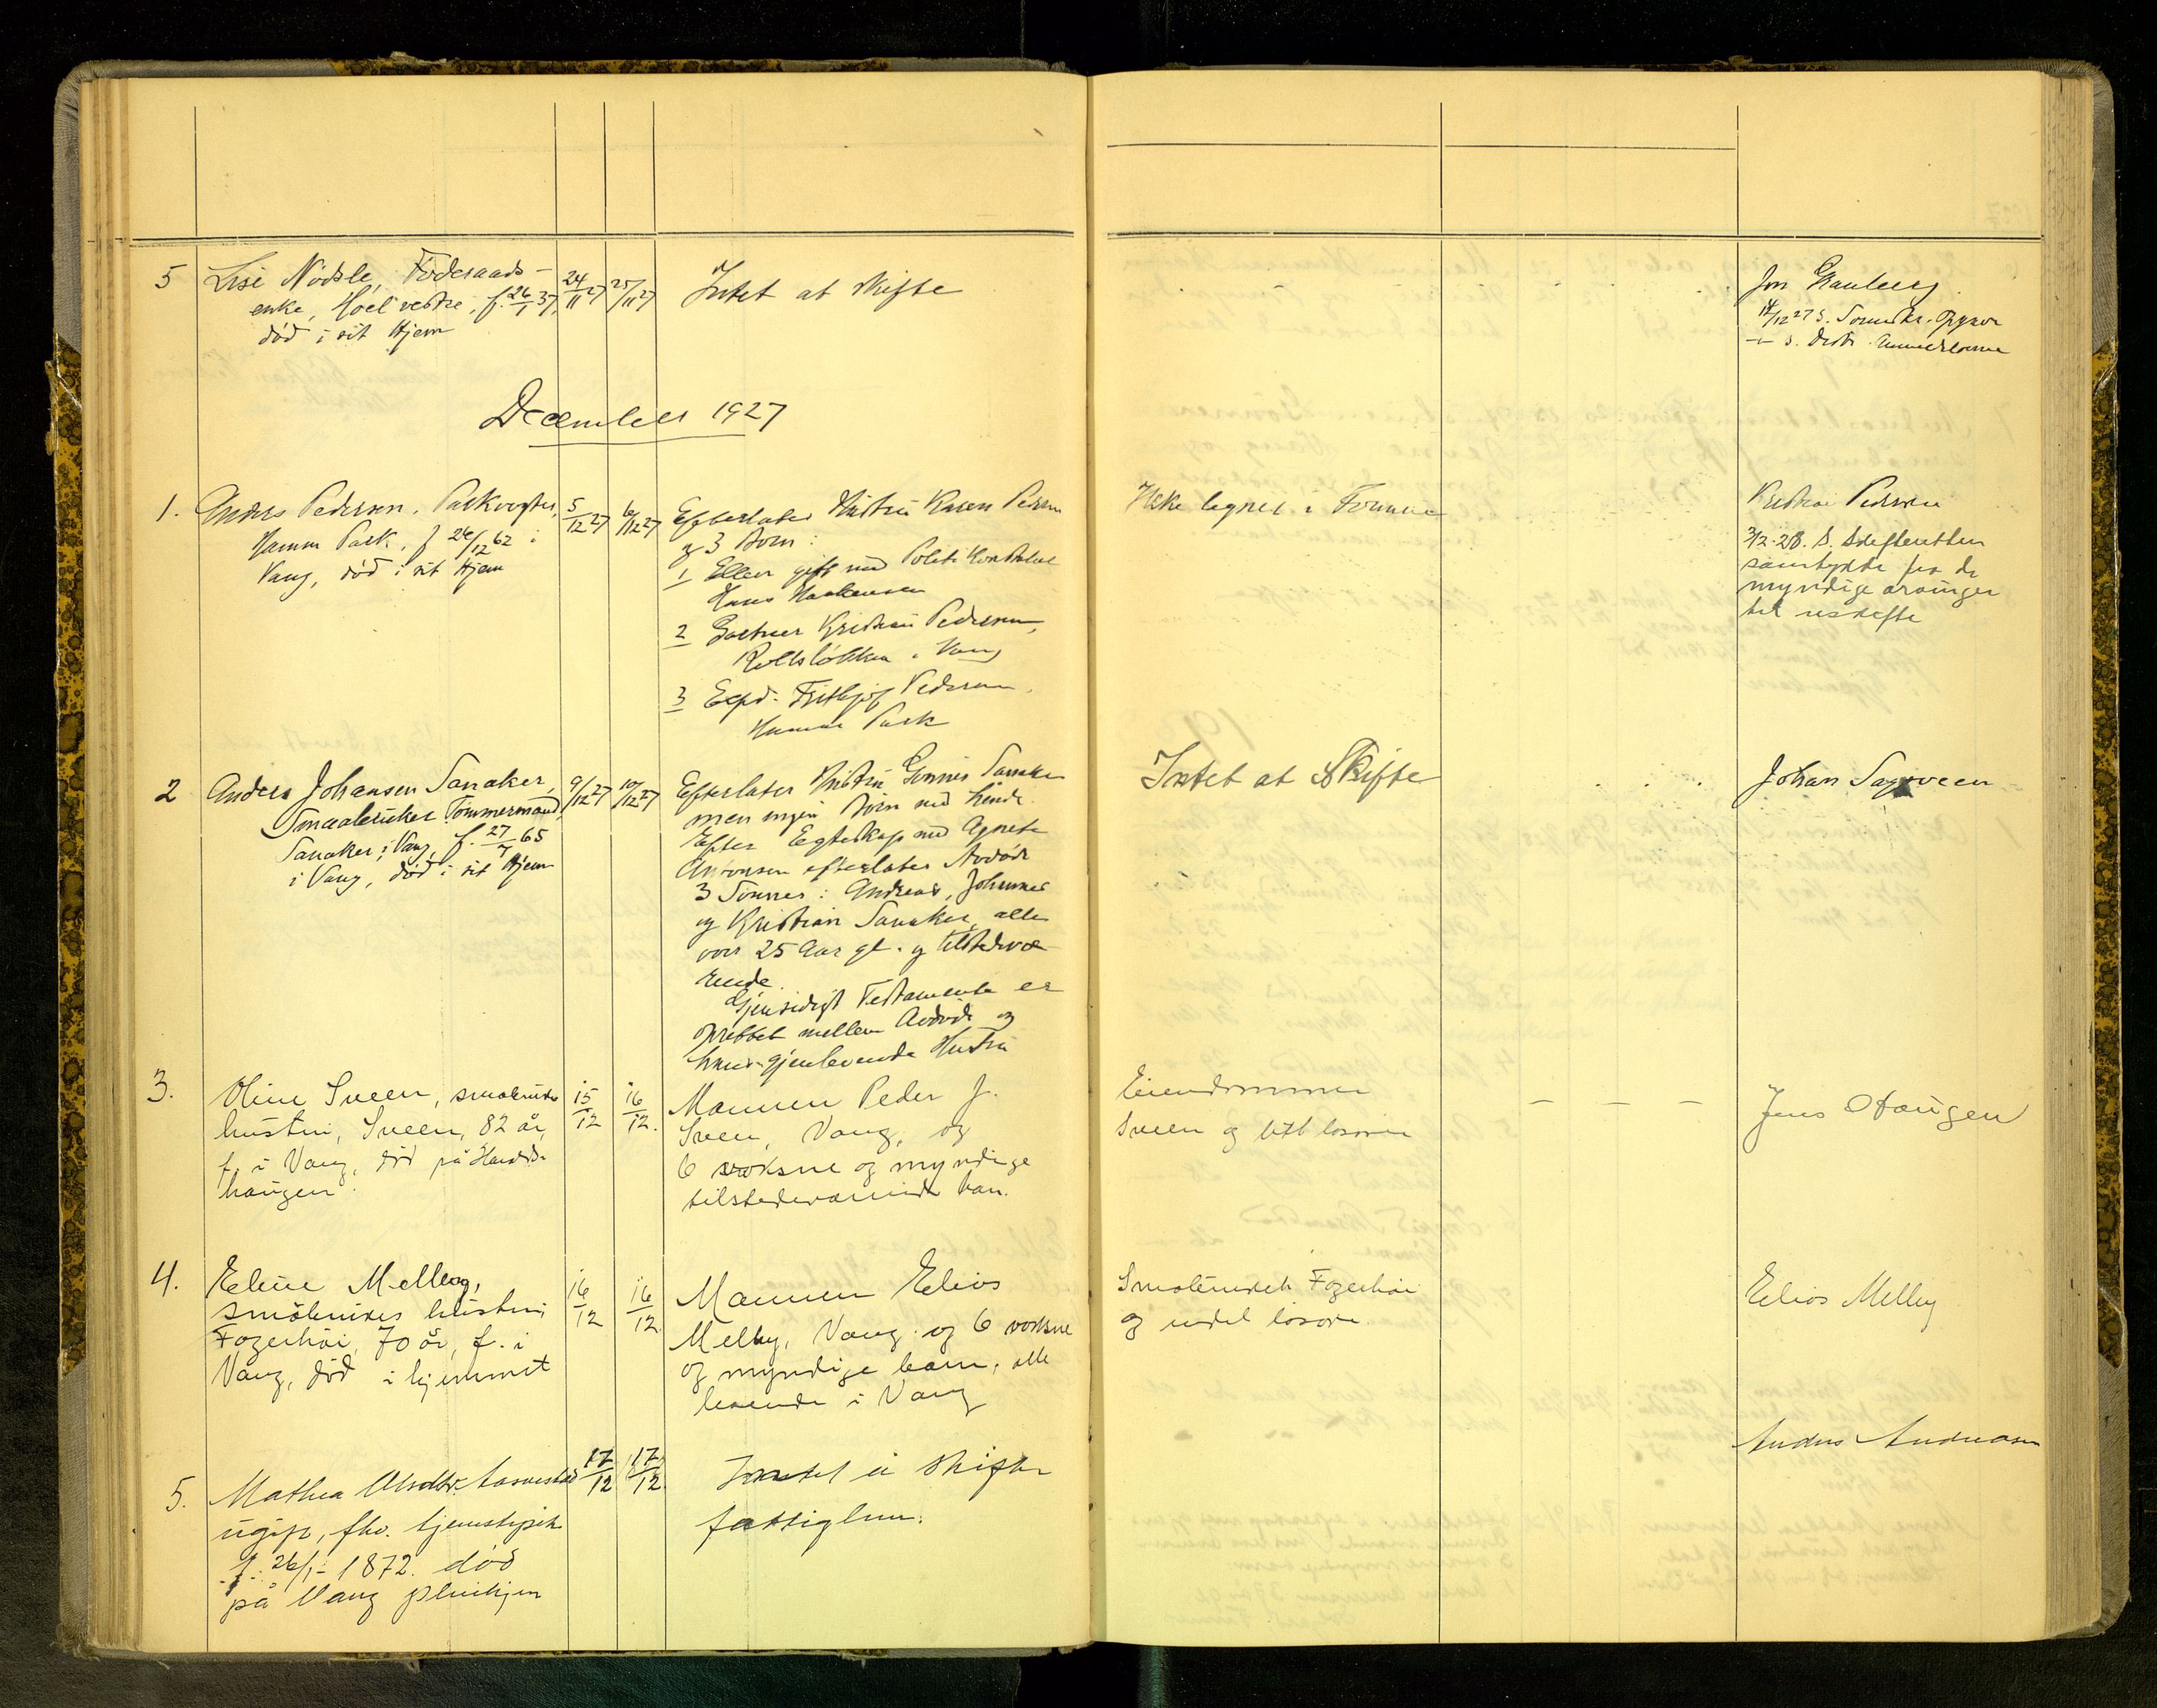 5 Lise Nödsle, Föderaads-
enke, Hoel vestre, f. 26/1 37,
död i sit Hjem
24/11 27
25/11 27
Intet at skifte
Jon Hauberg
14/12 27 S.
— S.
December 1927
1. Anders Pedersen, Parkvogter,
Hamar Park, f 26/12 62 i
Vang, död i sit Hjem
5/12 27
6/12 27
Efterlater Hustru Karen Pedersen
og 3 Børn:
1 Ellen gift med Politikonstabel
Hans Haakensen
2 Gartner Kristian Pedersen,
i Vang
3 Exp. Fritjof Pedersen,
Hamar Park
Ikke lignet i Formue
Kristian Pedersen
3/12-28. S. Skifteretten
samtykke fra de
myndige arvinger
til uskifte
2 Anders Johansen Sanaker,
Smaabruker Tömmermand,
Sanaker i Vang, f. 27/7 65
i Vang, död i sit Hjem
9/12 27
10/12 27
Efterlater Hustru Gunnes Sanaker
men ingen Børn med hende.
Efter Egteskap med Agnete
efterlater Avdöde
3 Sönner: Andreas, Johannes
og Kristian Sanaker, alle
over 25 Aar gl. og tilstedevæ-
rende.
Gjensidigt Testamente er
oprettet mellem Avdöde og
hans gjenlevende Hustru
Intet at Skifte
Johan
3. Oline Sveen, småbruker
hustru, Sveen, 82 år,
f. i Vang, död på
haugen.
15/12
16/12.
Mannen Peder J.
Sveen, Vang, og
6 voksne og myndige
tilstedeværende barn.
Eiendommen
Sveen og litt lösöre
— — —
Jens Haugen
4. Eline Melby,
småbrukers hustru,
Fagerhöi, 70 år, f. i
Vang, död i hjemmet
16/12
16/12.
Mannen Elias
Melby, Vang og 6 voksne
og myndige barn, alle
boende i Vang
Småbruket Fagerhöi
og endel lösöre.
Elias Melby
5. Mathea Olsdtr. Aasvestad
ugift, fhv. tjenestepike
f. 26/1- 1872. död
på Vang pleiehjem
17/12
17/12
Intet å skifte
fattiglem.
Anders Andreasen